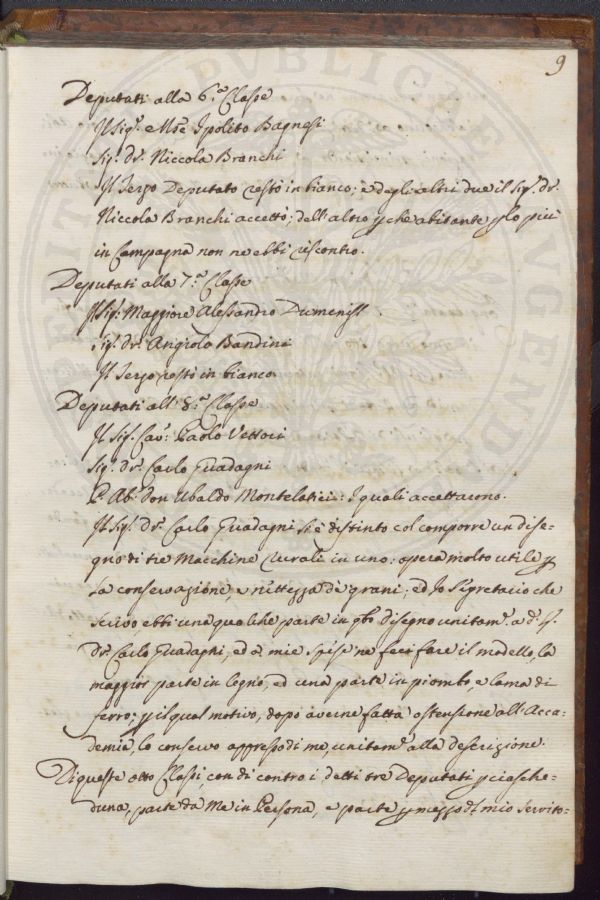 9
Deputati alla 6.ª Classe
Il Sig.r e Mse Ipolito Bagnesi
Sig.r D.r Niccola Branchi
Il Terzo Deputato restò in bianco; e degli altri due il Sig.r D.r
Niccola Branchi accettò; dell'altro p che abitante p lo più
in Campagna non ne ebbi riscontro.
Deputati alla 7.ª Classe
Il Sig.r Maggiore Alessandro
Sig.r D.r Angiolo Bandini
Il Terzo restò in bianco
Deputati all' 8.ª Classe
Il Sig.r Cav.r Paolo Vettori
Sig.r D.r Carlo Guadagni
P. Ab. Don Ubaldo Montelatici: I quali accettarono.
Il Sig.r D.r Carlo Guadagni si è distinto col comporre un dise-
gno di tre Macchine rurali in uno; opera molto utile p
la conservazione, e nittezza de grani; ed Io Segretario che
scrivo, ebbi una qualche parte in qto disegno unitam.e a d.o S.r
Dr. Carlo Guadagni, ed a mie Spese ne feci fare il modello, la
maggior parte in legno, ed una parte in piombo, e lama di
ferro; p il qual motivo, dopo averne fatta ostensione all'Acca-
demia, lo conservo appresso di me, unitam.e alla descrizione.
Di queste otto Classi, con di contro i detti tre Deputati p ciasche-
duna, parte da Me in Persona, e parte p mezzo d. mio Servito-
PUBLICAE